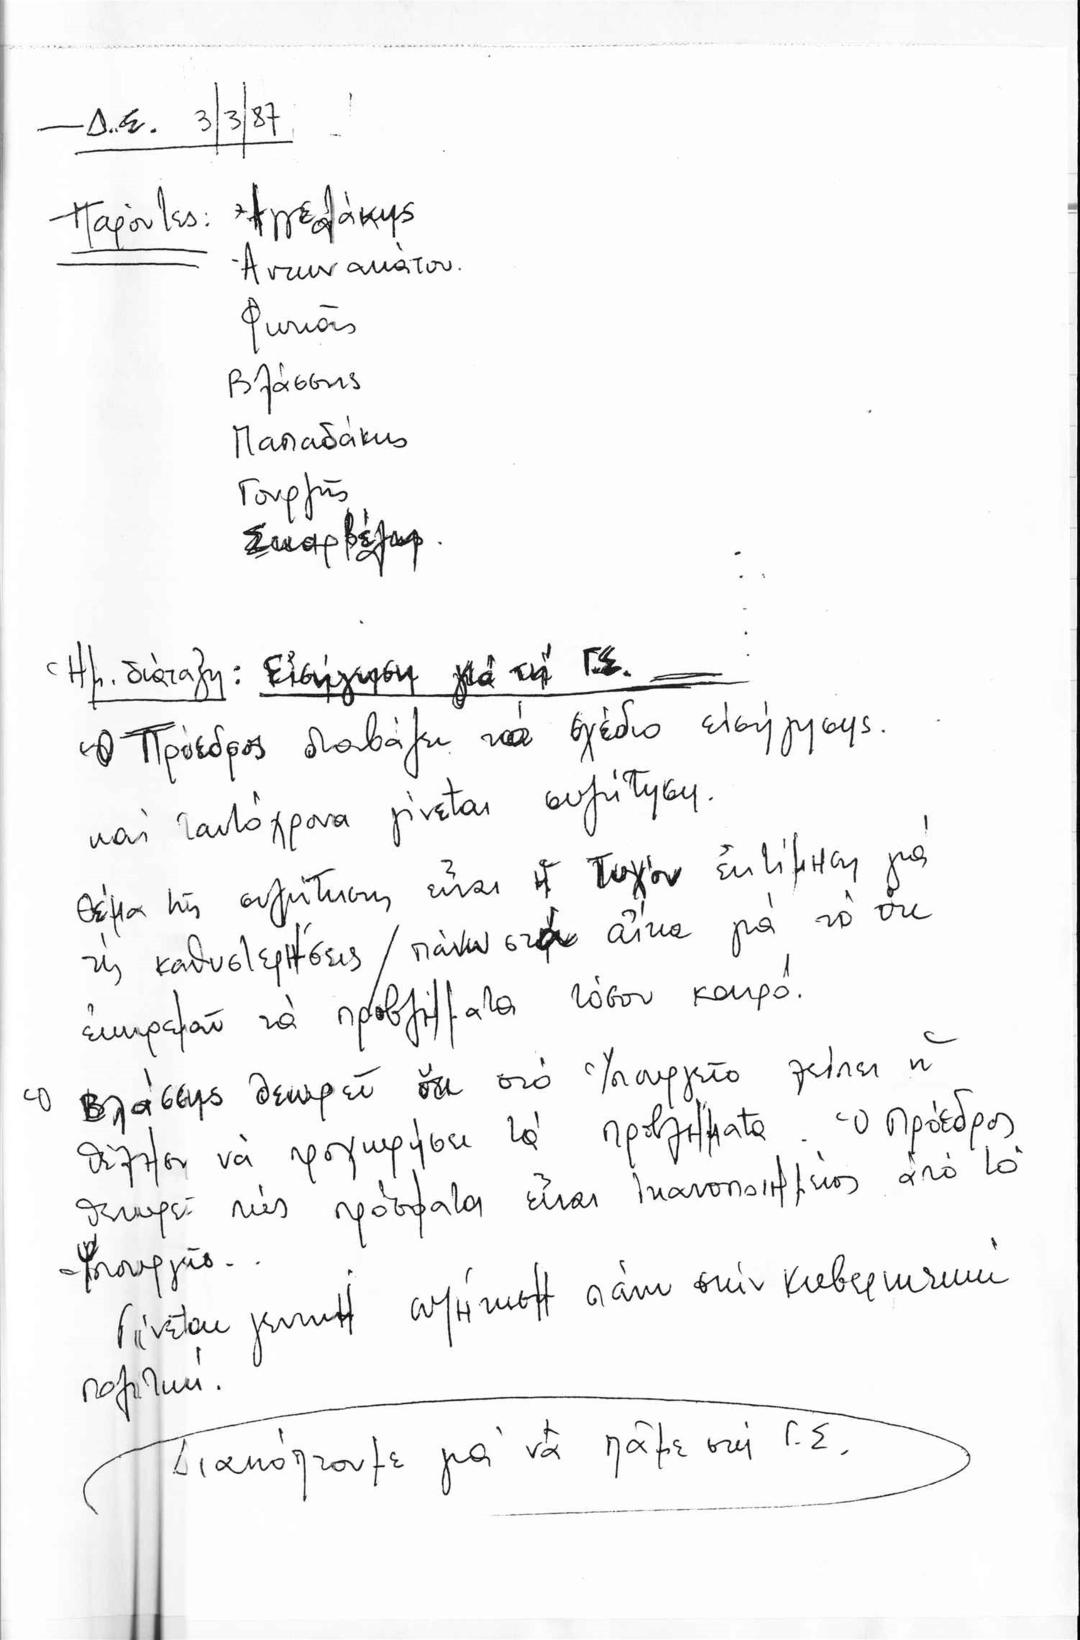 Δ.Σ. 3/3/87
Παρόντες: Ἀγγελάκης
Ἀντωνακάτου.
Φωκᾶς
Βλάσσης
Παπαδάκης
Γουργῆς
Σκαρβέλη.
Ἡμ. διάταξη: Εἰσήγηση γιά τή Γ.Σ.
Ὁ Πρόεδρος διαβάζει τό σχέδιο εἰσήγησης.
καί ταυτόχρονα γίνεται συζήτηση.
Θέμα τῆς συζήτησης εἶναι ἡ τυχόν ἐκτίμηση γιά
τίς καθυστερήσεις / πάνω στά αἴτια γιά τό ὅτι
ἐκκρεμοῦν τά προβλήματα τόσον καιρό.
Ὁ Βλάσσης θεωρεῖ ὅτι στό Ὑπουργεῖο λείπει ἡ
θέληση νά προχωρήσει τά προβλήματα. Ὁ Πρόεδρος
θεωρεῖ πώς πρόσφατα εἶναι ἱκανοποιημένος ἀπό τό
Ὑπουργεῖο..
Γίνεται γενική συζήτηση πάνω στήν κυβερνητική
πολιτική.
Διακόπτουμε γιά νά πᾶμε στή Γ.Σ.